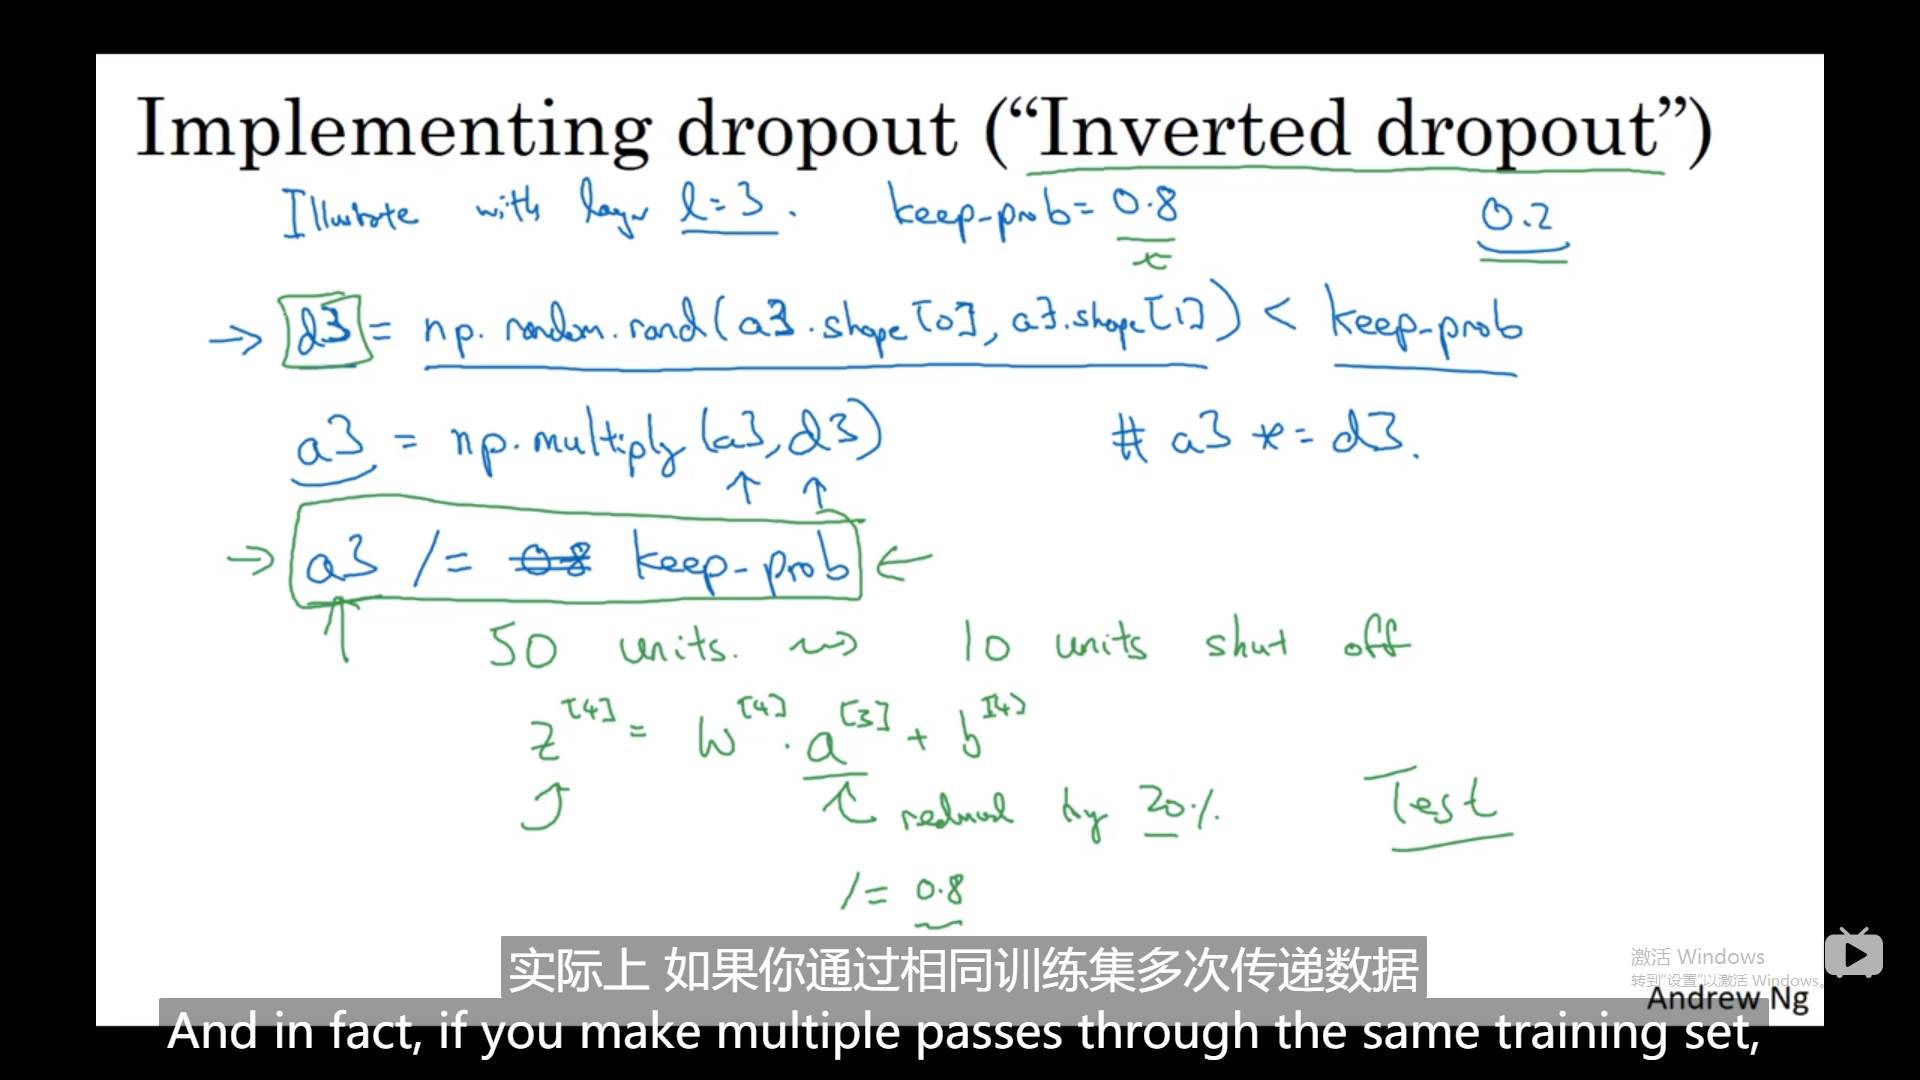 Implementing dropout (“Inverted dropout”)
Illustrate with layer l=3. keep-prob= 0.8 0.2
→ d3 = np.random.rand(a3.shape[0], a3.shape[1]) < keep-prob
a3 = np.multiply(a3, d3) # a3 *= d3.
↑ ↑
→ a3 /= 0.8 keep-prob ←
↑ 50 units. ⇝ 10 units shut off
z[4] = w[4] · a[3] + b[4]
reduced by 20%. Test
/= 0.8
实际上 如果你通过相同训练集多次传递数据
激活 Windows
转到“设置”以激活 Windows。
Andrew Ng
And in fact, if you make multiple passes through the same training set,